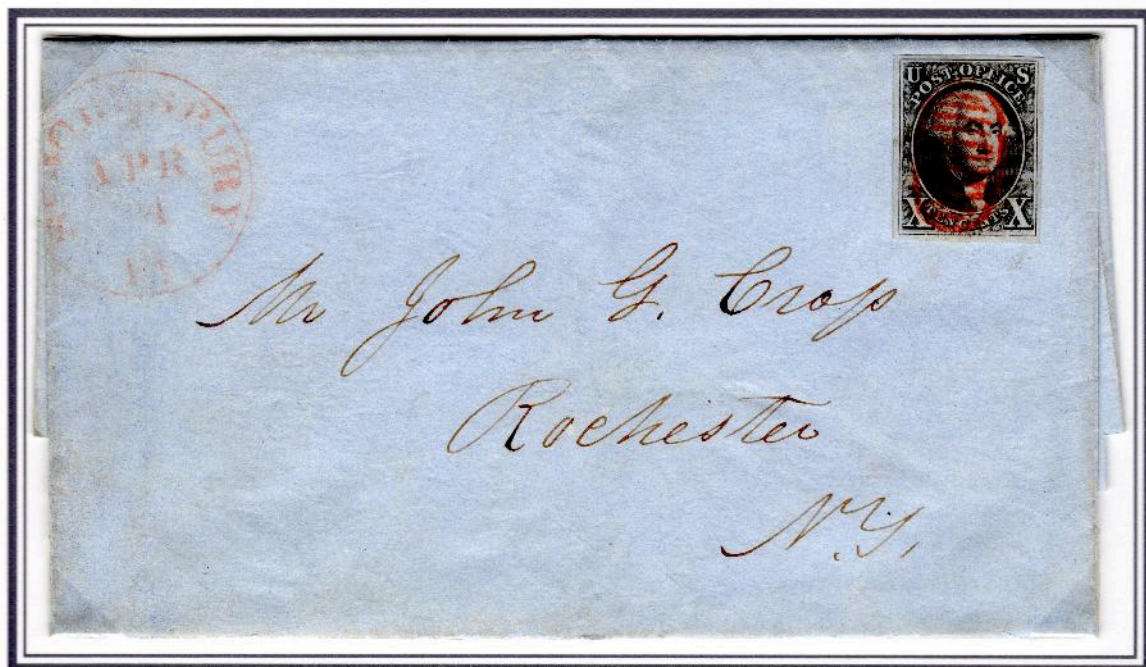 ST JOHNSBURY
APR
4
U S
POST OFFICE
X TEN CENTS X
Mr John G. Cross
Rochester
N.Y.